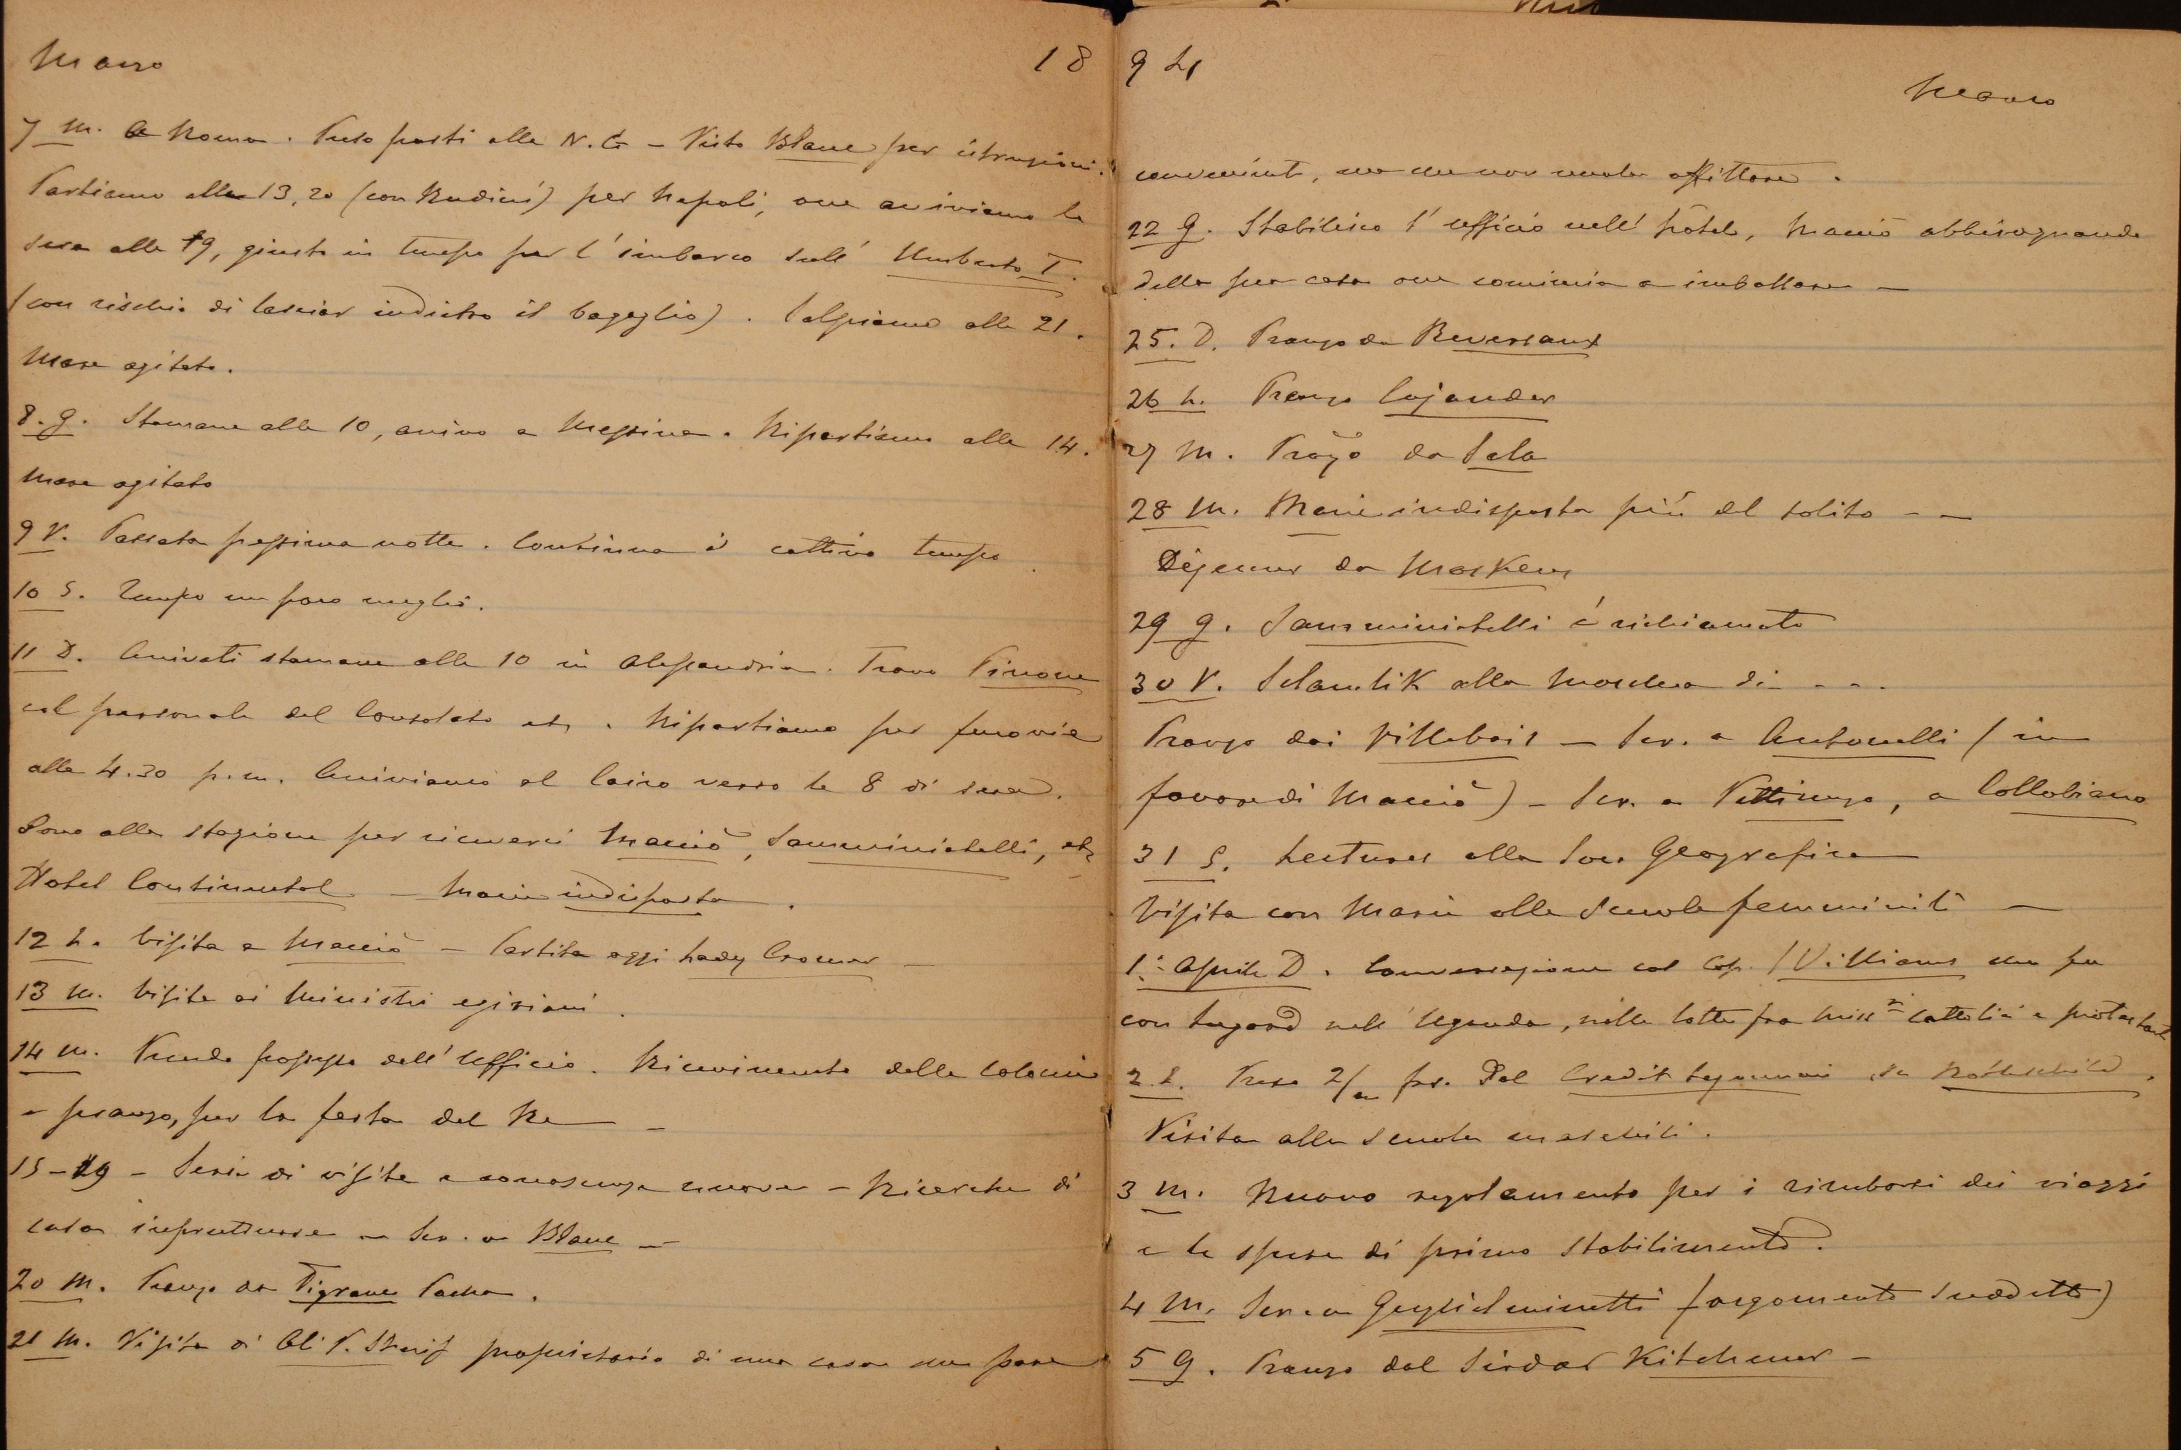 Marzo 18
7 M. A Roma. Preso posti alla N. G. – Visto Blanc per istruzioni.
Partiamo alle 13,20 (con Rudinì) per Napoli, ove arriviamo la
sera alle 19, giusto in tempo per l'imbarco sull' Umberto I.
(con rischio di lasciar indietro il bagaglio). Salpiamo alle 21.
Mare agitato.
8. G. Stamane alle 10, arrivo a Messina. Ripartiamo alle 14.
Mare agitato
9 V. Passata pessima notte. Continua il cattivo tempo
10 S. Tempo un poco meglio.
11 D. Arrivati stamane alle 10 in Alessandria. Trovo
col personale del Consolato etc. Ripartiamo per ferrovia
alle 4.30 p.m. Arriviamo al Cairo verso le 8 di sera.
Sono alla stazione per riceverci Macciò, Samminiatelli, etc
Hotel Continental – Marie indisposta.
12 L. Visita a Macciò – Partita oggi Lady Cromer –
13 M. Visita ai Ministri egiziani.
14 M. Prendo possesso dell'Ufficio. Ricevimento della Colonia
e pranzo, per la festa del Re –
15–19 – Serie di visite e conoscenze nuove – Ricerche di
casa infruttuose – Scr. a Blanc –
20 M. Pranzo da Tigrane Pacha.
21 M. Visita di Ali P. Sherif proprietario di una casa che pare
94
Marzo
conveniente, ma che non vuole affittare.
22 G. Stabilisco l'ufficio nell' hôtel, Macciò abbisognando
della sua casa ove comincia a imballare –
25. D. Pranzo da Reverseaux
26 L. Pranzo Cojander
27 M. Pranzo da Sala
28 M. Marie indisposta più del solito – –
Déjeuner da Maskens
29 G. Samminiatelli è richiamato
30 V. Selamlik alla Moschea di – – .
Pranzo dai Villebois – Scr. a Antonelli (in
favore di Macciò) – Scr. a, a Collobiano
31 S. Lectures alla Soc. Geografica
Visita con Marie alle Scuole femminili –
1° Aprile D. Conversazione col Cap. Williams che fu
con Lugard nell'Uganda, nelle lotte fra miss.ri cattolici e protestanti
2. L. Preso 2/m frs. dal Credit Lyonnais, da Rothschild.
Visita alle Scuole maschili.
3 M. Nuovo regolamento per i rimborsi dei viaggi
e le spese di primo stabilimento.
4 M. Scr. a Guglielminetti (argomento suddetto)
5 G. Pranzo dal Sirdar Kitchener –